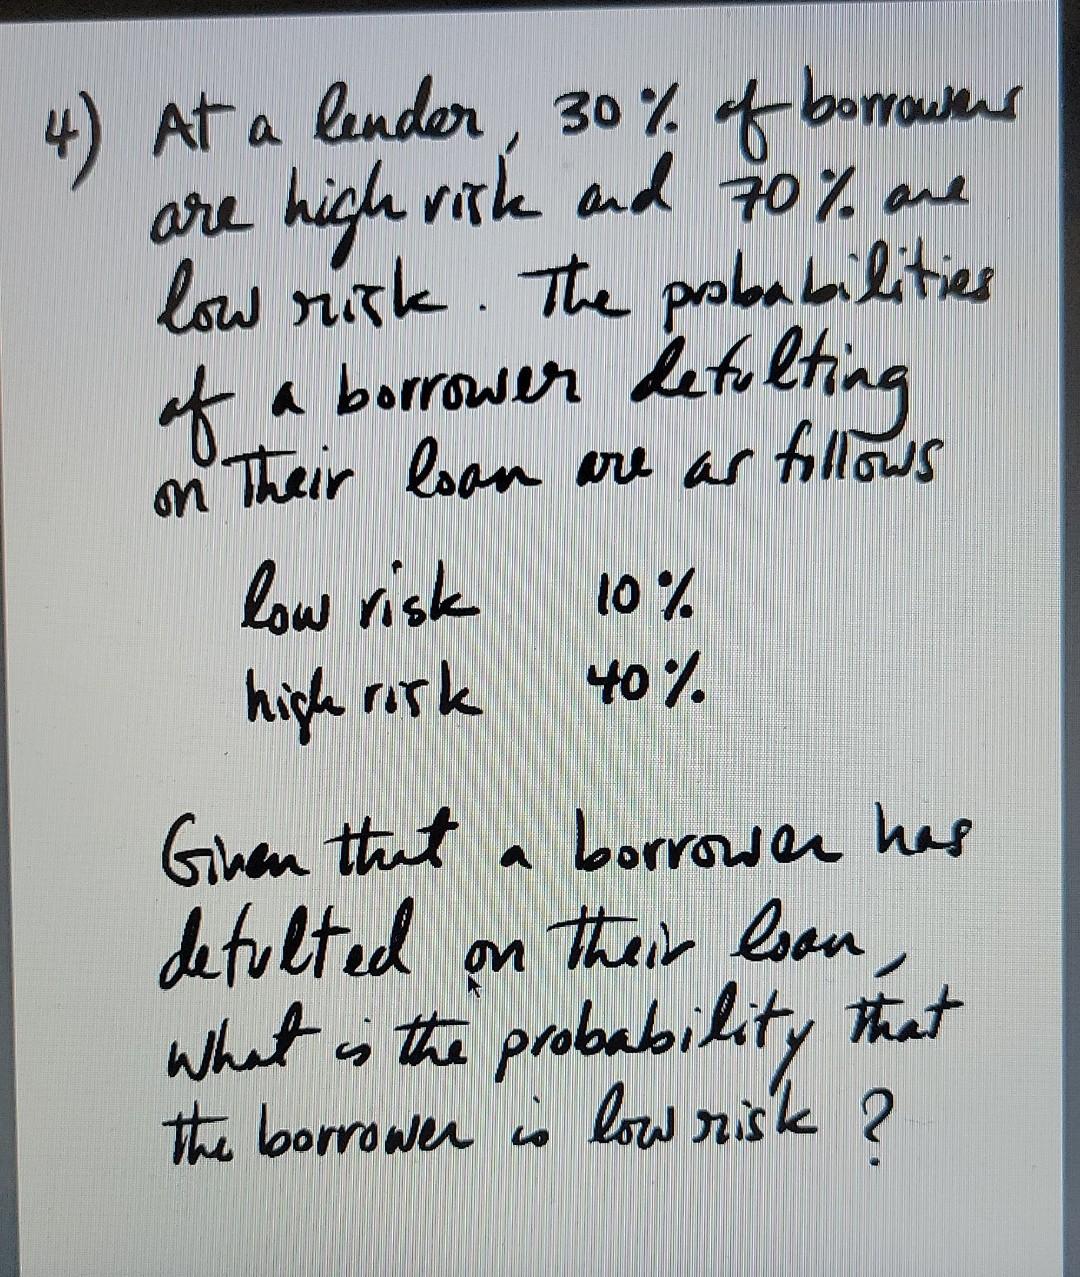 4) At a lender, 30% of borrowers
are high risk and 70% are
low risk. The probabilities
of a borrower defulting
on their loan are as follows
low risk 10%
high risk 40%
Given that a borrower has
defulted on their loan,
what is the probability that
the borrower is low risk?